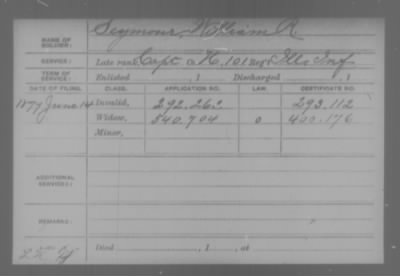 NAME OF SOLDIER: Seymour, William R
SERVICE: Late rank Capt Co H, 101 Reg't Ills Inf
TERM OF SERVICE: Enlisted , 1 Discharged , 1
DATE OF FILING. CLASS. APPLICATION NO. LAW. CERTIFICATE NO.
1877 June 14 Invalid, 292.262 293.112
Widow, 540.704 0 400.176
Minor,
ADDITIONAL SERVICES:
REMARKS:
Died , 1 , at